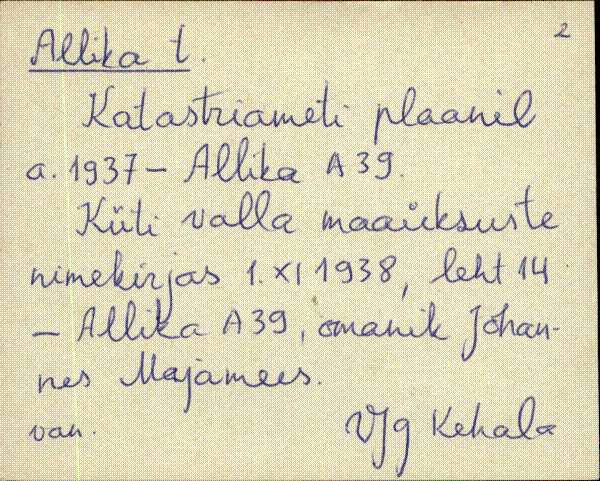 2
Allika t.
Katastriameti plaanil
a. 1937 – Allika A 39.
Küti valla maaüksuste
nimekirjas 1. XI 1938, leht 14
– Allika A 39, omanik Johan-
nes Majamees.
van. VJg Kehala